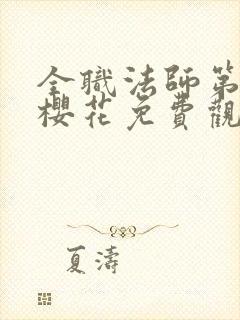 全職法師第
櫻花免費觀
夏濤